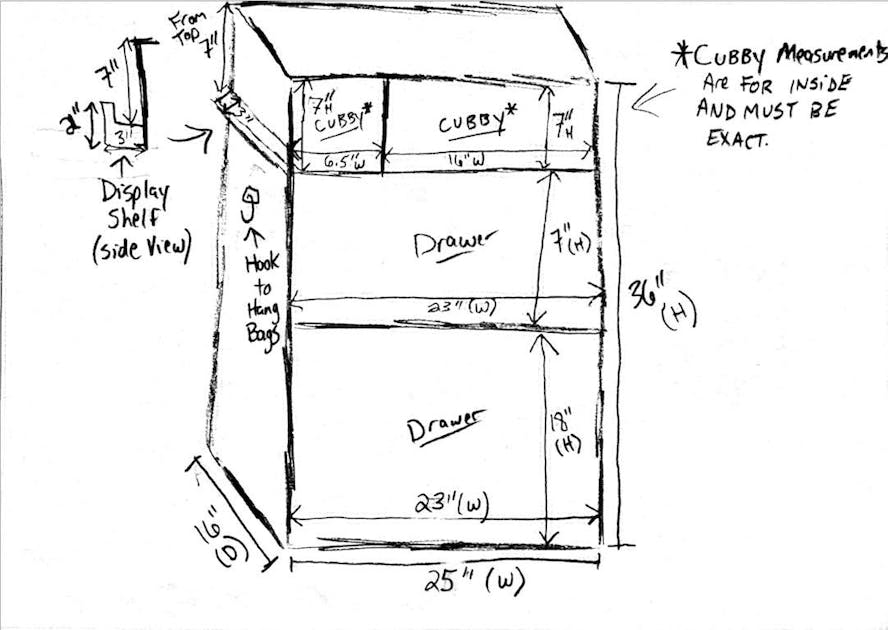 From
Top
7"
7"
2"
3"
3"
Display
Shelf
(side View)
Hook
to
Hang
Bags
7"H
CUBBY*
6.5"W
CUBBY*
7"H
16"W
Drawer
7"(H)
23"(W)
Drawer
18"
(H)
23"(W)
36"
(H)
16"
(D)
25"(W)
*CUBBY Measurements
Are FOR INSIDE
AND MUST BE
EXACT.